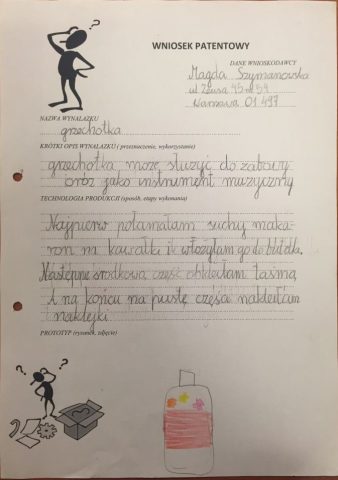 WNIOSEK PATENTOWY
DANE WNIOSKODAWCY
Magda Szymanowska
ul Zeusa 45 m 59
Warszawa 01 497
NAZWA WYNALAZKU
grzechotka
KRÓTKI OPIS WYNALAZKU ( przeznaczenie, wykorzystanie)
grzechotka może służyć do zabawy
oraz jako instrument muzyczny
TECHNOLOGIA PRODUKCJI (sposób, etapy wykonania)
Najpierw połamałam suchy maka-
ron na kawałki i włożyłam go do butelki.
Następnie środkową część obkleiłam taśmą
A na końcu na pustę części nakleiłam
naklejki.
PROTOTYP (rysunek, zdjęcie)